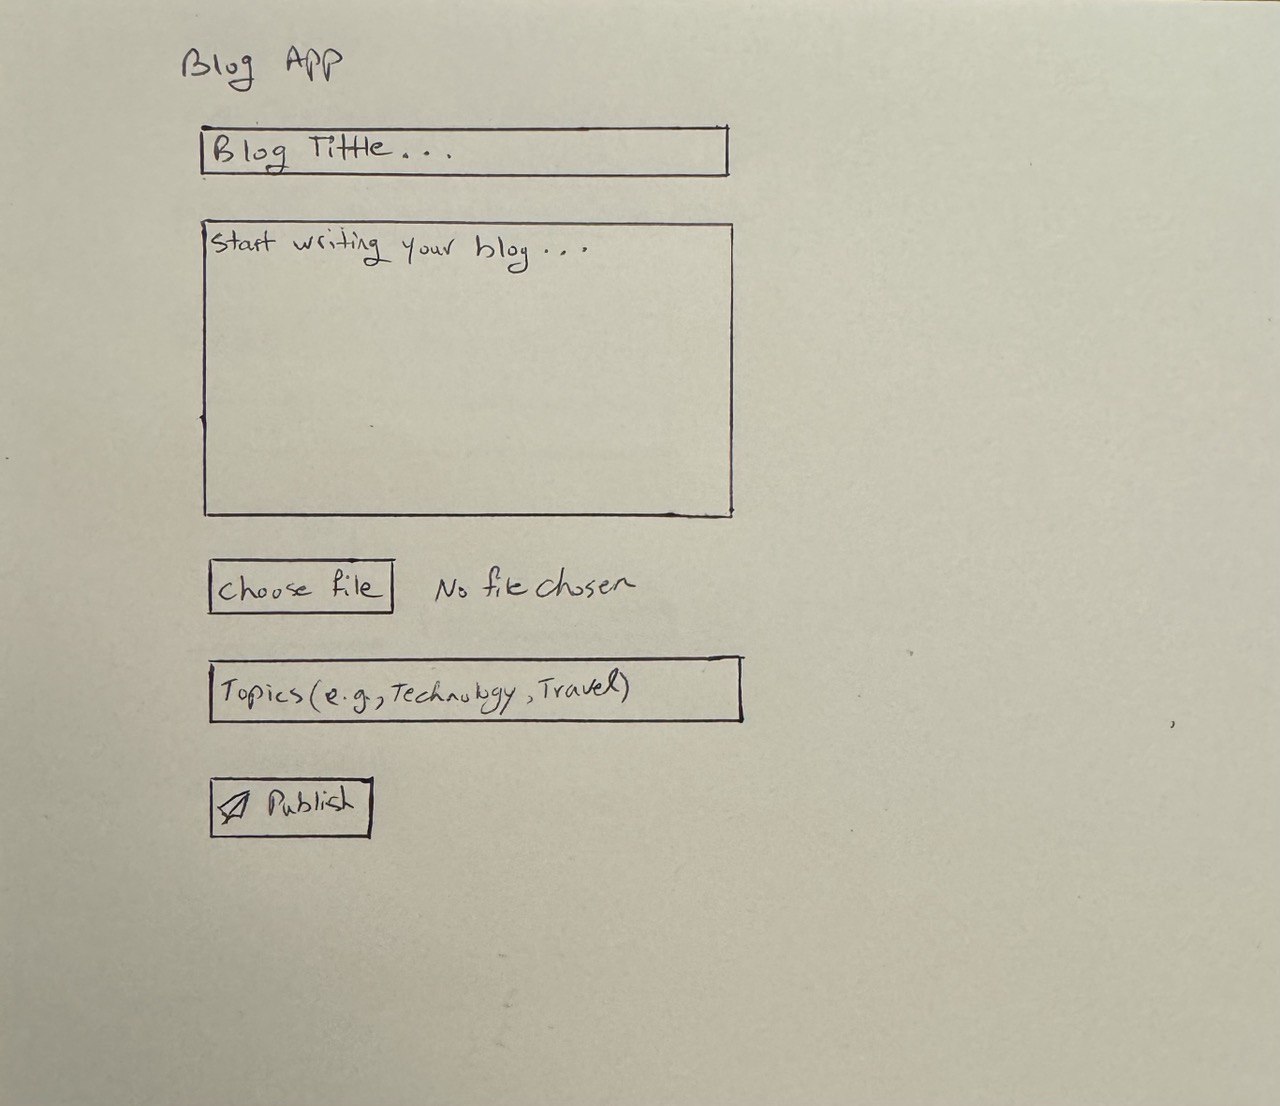 Blog App
Blog Tittle...
Start writing your blog...
Choose file No file chosen
Topics (e.g., Technology, Travel)
Publish